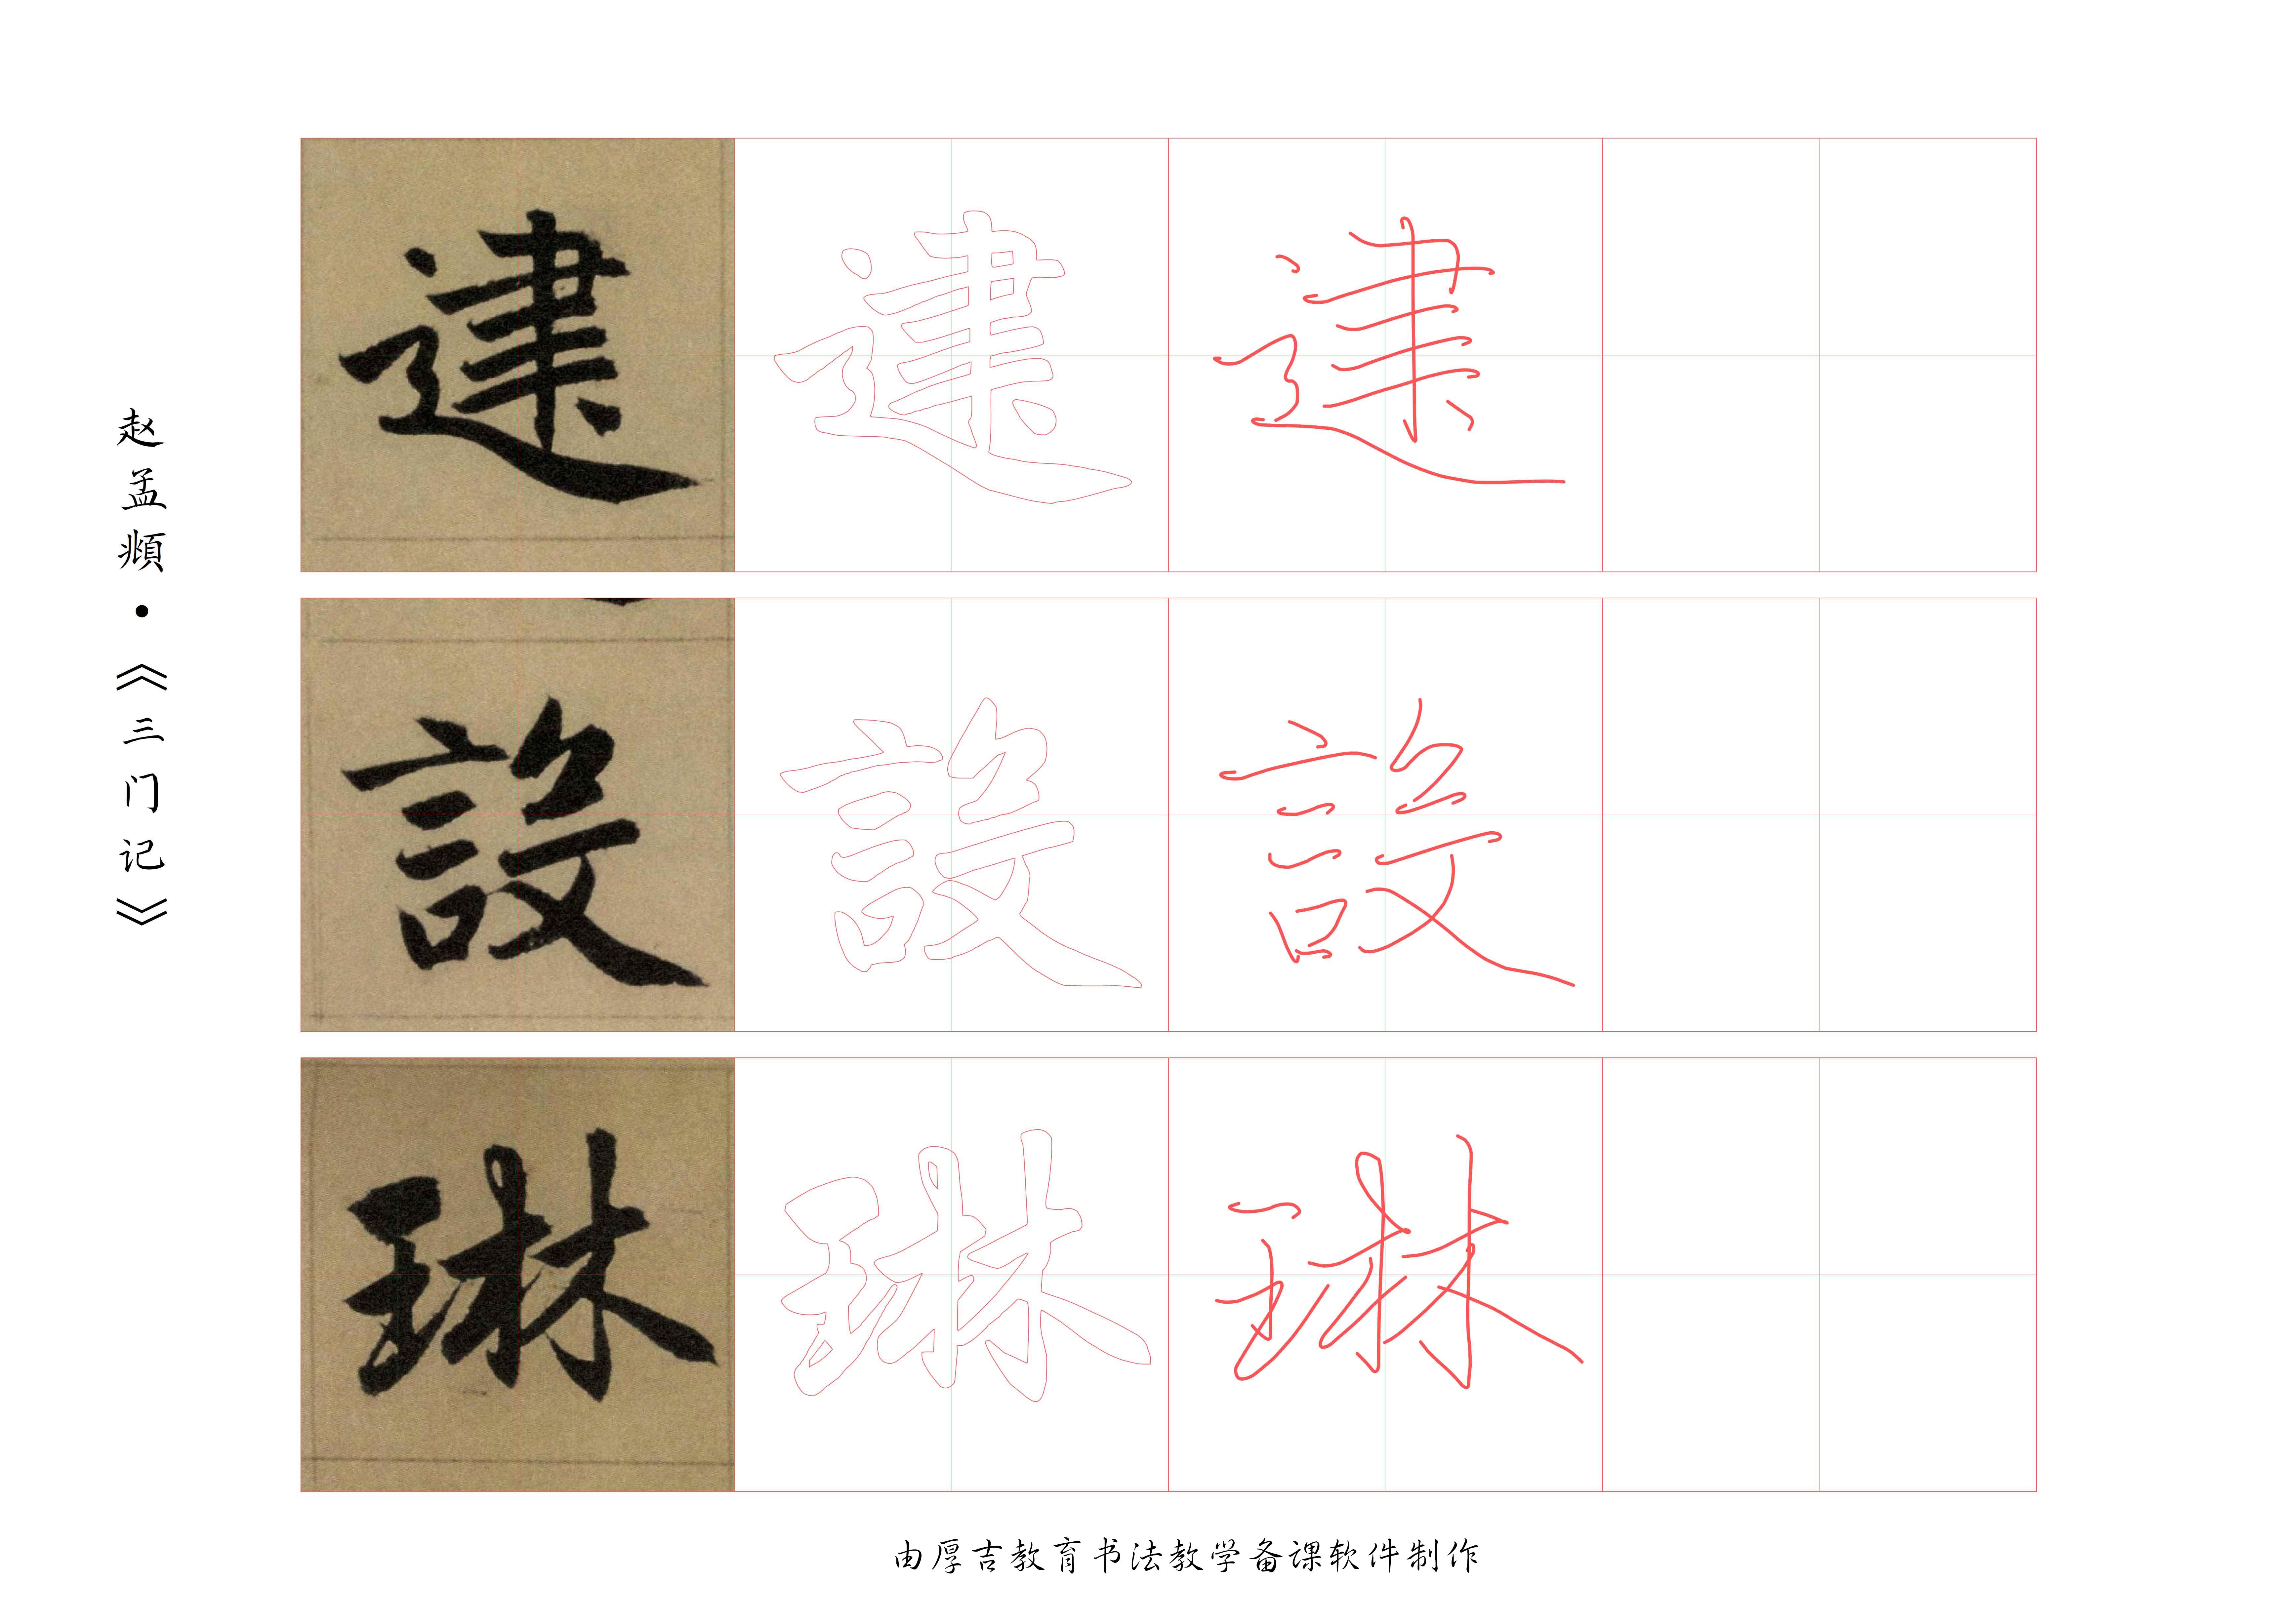 赵孟頫·《三门记》
建 建 建
設 設 設
琳 琳 琳
由厚吉教育书法教学备课软件制作